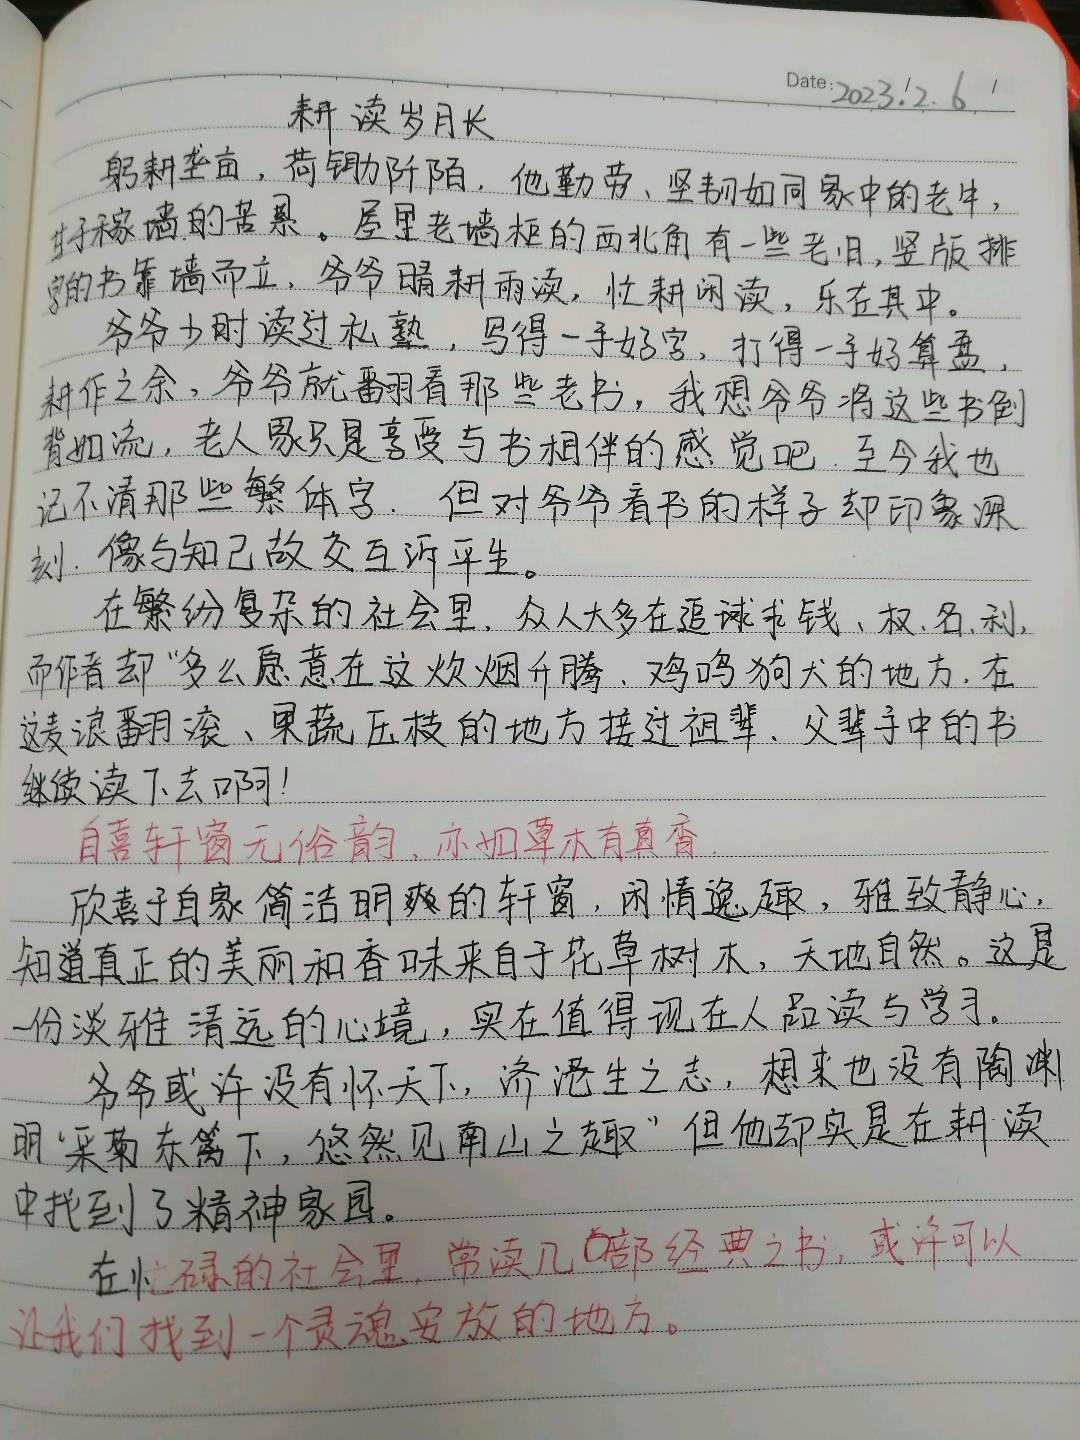 Date: 2023.2.6
耕读岁月长
躬耕垄亩，荷锄阡陌，他勤劳、坚韧如同家中的老牛，
甘于稼墙的苦累。屋里老墙柜的西北角有一些老旧，竖版排
字的书靠墙而立，爷爷晴耕雨读，忙耕闲读，乐在其中。
爷爷少时读过私塾，写得一手好字，打得一手好算盘，
耕作之余，爷爷就翻看那些老书，我想爷爷将这些书倒
背如流，老人家只是享受与书相伴的感觉吧．至今我也
记不清那些繁体字．但对爷爷看书的样子却印象深
刻．像与知己故交互诉平生。
在繁纷复杂的社会里，众人大多在追逑求钱、权、名、利，
而作者却“多么愿意在这炊烟升腾、鸡鸣狗犬的地方，在
这麦浪翻滚、果蔬压枝的地方接过祖辈、父辈手中的书
继续读下去啊！
自喜轩窗无俗韵，亦如草木有真香．
欣喜于自家简洁明爽的轩窗，闲情逸趣，雅致静心，
知道真正的美丽和香味来自于花草树木，天地自然。这是
一份淡雅清远的心境，实在值得现在人品读与学习。
爷爷或许没有怀天下，济沧生之志，想来也没有陶渊
明“采菊东篱下，悠然见南山之趣”但他却实是在耕读
中找到了精神家园。
在忙碌的社会里，常读几部经典之书，或许可以
让我们找到一个灵魂安放的地方。